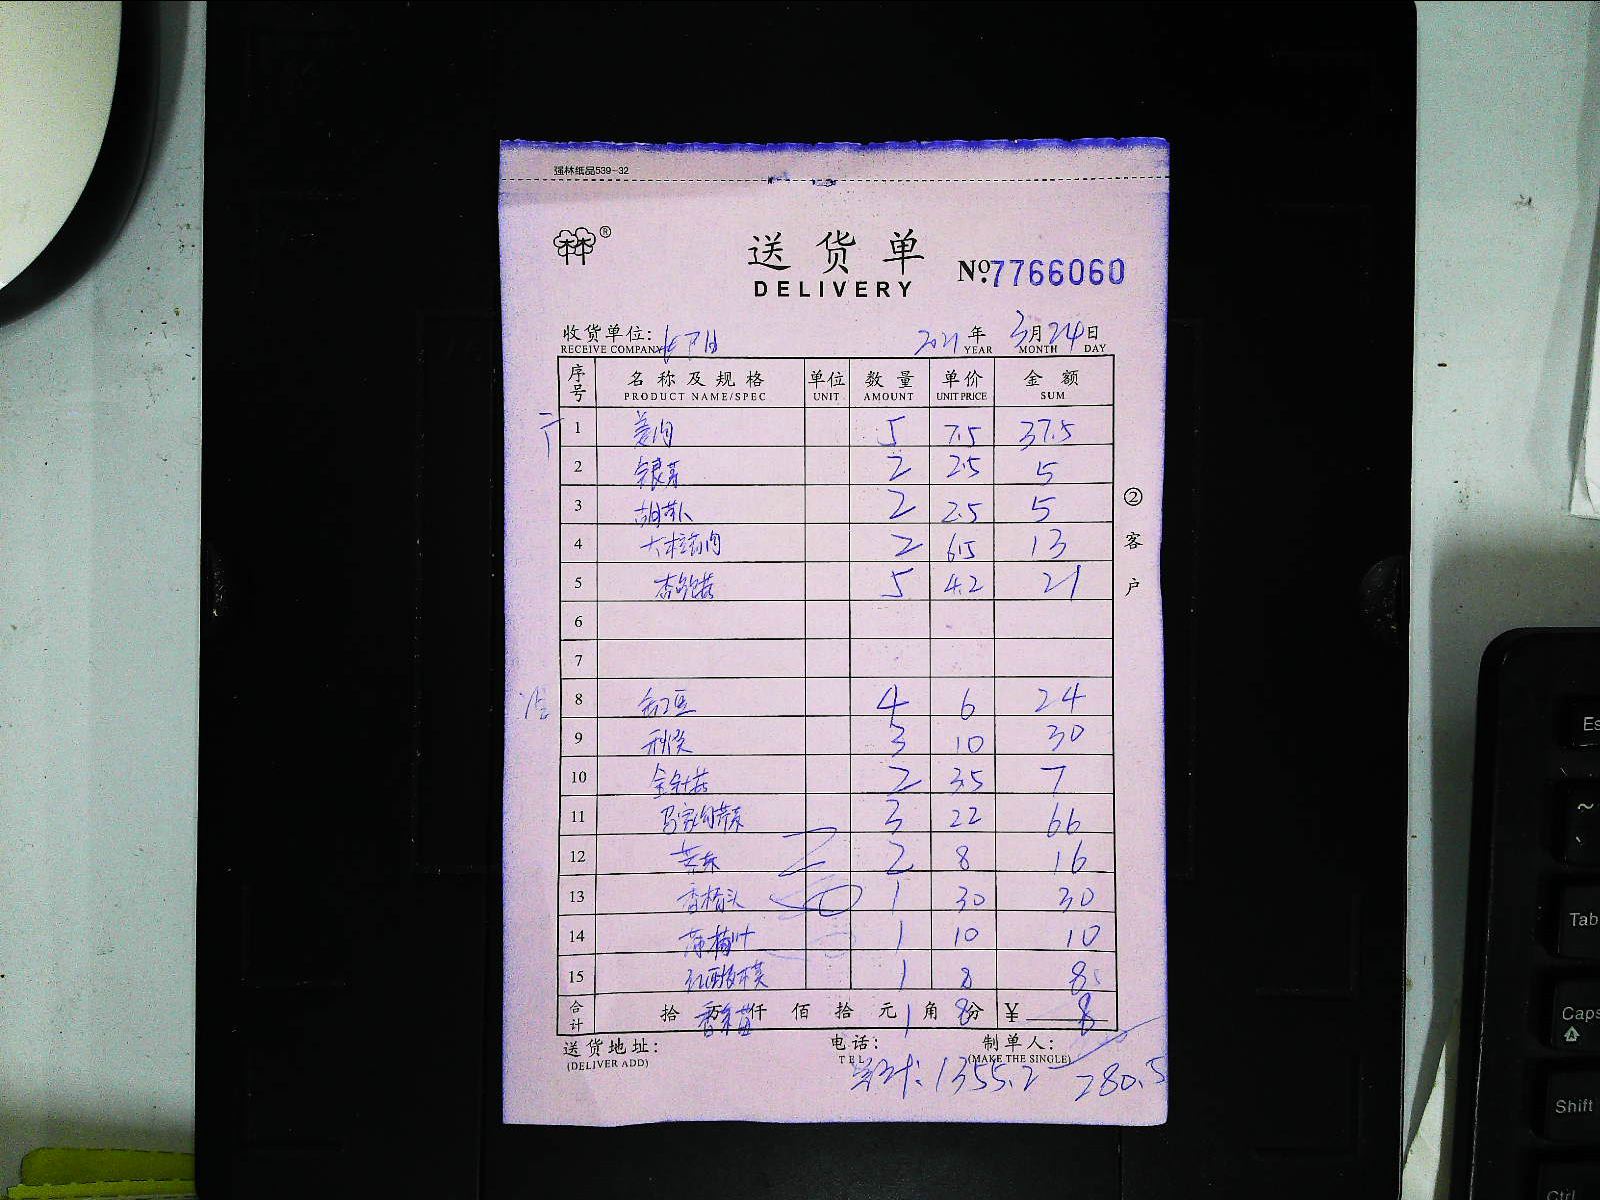 强林纸品539-32
林®
送货单
DELIVERY
No.7766060
收货单位: 2021年3月24日
RECEIVE COMPANY YEAR MONTH DAY
序号 名称及规格 单位 数量 单价 金额
PRODUCT NAME/SPEC UNIT AMOUNT UNIT PRICE SUM
1 姜肉 5 7.5 37.5
2 银芽 2 2.5 5
3 胡萝卜 2 2.5 5
4 2 6.5 13
5 杏鲍菇 5 4.2 21
6
7
8 4 6 24
9 秋葵 3 10 30
10 金针菇 2 3.5 7
11 3 22 66
12 2 8 16
13 1 30 30
14 薄荷叶 1 10 10
15 1 8 8
合计 拾 万 仟 佰 拾 元 角 分 ¥
香菜苗 1 8 8
②客户
送货地址: 电话: 制单人:
(DELIVER ADD) TEL (MAKE THE SINGLE)
总计:1355.2 280.5
Es
~
Tab
Caps
Shift
Ctrl